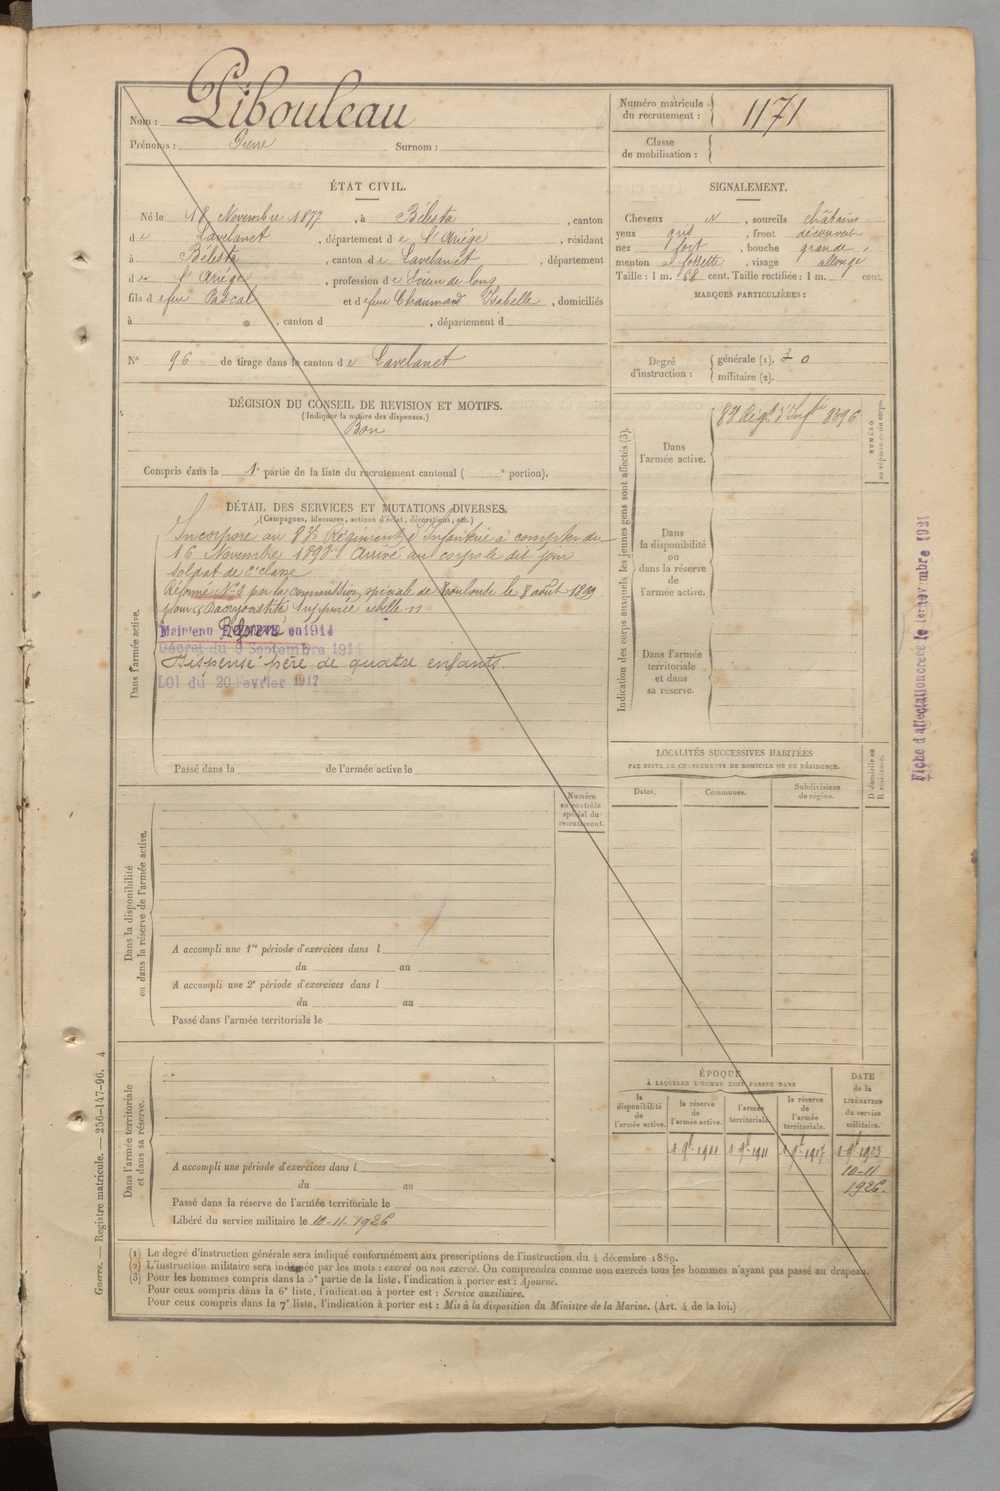 Nom : Pibouleau
Prénoms : Pierre Surnom :
Numéro matricule du recrutement : 1171
Classe de mobilisation :
ÉTAT CIVIL.
Né le 18 Novembre 1877, à Bélesta, canton
de Lavelanet, département de l'Ariège, résidant
à Bélesta, canton de Lavelanet, département
de l'Ariège, profession de Scieur de long
fils de feu Pascal et de feue Chaumand Isabelle, domiciliés
à , canton d , département d
N° 96 de tirage dans le canton de Lavelanet
SIGNALEMENT.
Cheveux N, sourcils châtains
yeux gris, front découvert
nez fort, bouche grande,
menton à fossette, visage allongé
Taille : 1 m. 68 cent. Taille rectifiée : 1 m. cent.
MARQUES PARTICULIÈRES :
Degré d'instruction :
générale (1).
militaire (2).
DÉCISION DU CONSEIL DE REVISION ET MOTIFS.
(Indiquer la nature des dispenses.)
Bon
Compris dans la 1e partie de la liste du recrutement cantonal ( e portion).
DÉTAIL DES SERVICES ET MUTATIONS DIVERSES.
(Campagnes, blessures, actions d'éclat, décorations, etc.)
Dans l'armée active.
Incorporé au 83e Régiment d'Infanterie à compter du
16 Novembre 1898 Arrivé au corps le dit jour
soldat de 2e classe
Réformé N° 2 par la commission spéciale de Toulouse le 8 août 1899
pour Dacryocistite suppurée rebelle
Maintenu Réformé en 1914
Décret du 9 Septembre 1914
Dispensé père de quatre enfants.
LOI du 20 Février 1917
Passé dans la de l'armée active le
Indication des corps auxquels les jeunes gens sont affectés (3).
Dans l'armée active.
83e Régt d'Infie 8396
NUMÉRO au répertoire du corps.
Dans la disponibilité ou dans la réserve de l'armée active.
Dans l'armée territoriale et dans sa réserve.
Fiche d'affectation créée le 1er novembre 1921
LOCALITÉS SUCCESSIVES HABITÉES
PAR SUITE DE CHANGEMENTS DE DOMICILE OU DE RÉSIDENCE.
Dates. Communes. Subdivisions de région. D domicile ou R résidence.
Numéro au contrôle spécial du recrutement.
Dans la disponibilité ou dans la réserve de l'armée active.
A accompli une 1re période d'exercices dans l
du au
A accompli une 2e période d'exercices dans l
du au
Passé dans l'armée territoriale le
Dans l'armée territoriale et dans sa réserve.
A accompli une période d'exercices dans l
du au
Passé dans la réserve de l'armée territoriale le
Libéré du service militaire le 10-11-1926
ÉPOQUE
À LAQUELLE L'HOMME DOIT PASSER DANS
la disponibilité de l'armée active.
la réserve de l'armée active.
l'armée territoriale.
la réserve de l'armée territoriale.
DATE de la LIBÉRATION du service militaire.
10-11
1926.
Guerre. — Registre matricule. — 256-147-96. 4
(1) Le degré d'instruction générale sera indiqué conformément aux prescriptions de l'instruction du 4 décembre 1889.
(2) L'instruction militaire sera indiquée par les mots : exercé ou non exercé. On comprendra comme non exercés tous les hommes n'ayant pas passé au drapeau.
(3) Pour les hommes compris dans la 5e partie de la liste, l'indication à porter est : Ajourné.
Pour ceux compris dans la 6e liste, l'indication à porter est : Service auxiliaire.
Pour ceux compris dans la 7e liste, l'indication à porter est : Mis à la disposition du Ministre de la Marine. (Art. 4 de la loi.)